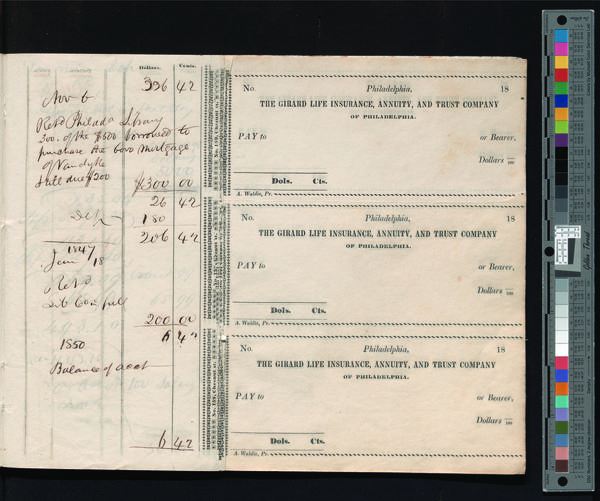 Dollars. Cents.
326 42
Nov 6
Retd Philada Library
300. of the $500 borrowed to
purchase the 6000 mortgage
of Vandyke
Still due $200
$300 00
26 42
Dep 180
206 42
1847
Jan 18
Retd
in full
200 00
6 42
1850
Balance of acct
6 42
No. Philadelphia, 18
THE GIRARD LIFE INSURANCE, ANNUITY, AND TRUST COMPANY
OF PHILADELPHIA.
PAY to or Bearer,
Dollars 100
Dols. Cts.
A. Waldie, Pr.
No. Philadelphia, 18
THE GIRARD LIFE INSURANCE, ANNUITY, AND TRUST COMPANY
OF PHILADELPHIA.
PAY to or Bearer,
Dollars 100
Dols. Cts.
A. Waldie, Pr.
No. Philadelphia, 18
THE GIRARD LIFE INSURANCE, ANNUITY, AND TRUST COMPANY
OF PHILADELPHIA.
PAY to or Bearer,
Dollars 100
Dols. Cts.
A. Waldie, Pr.